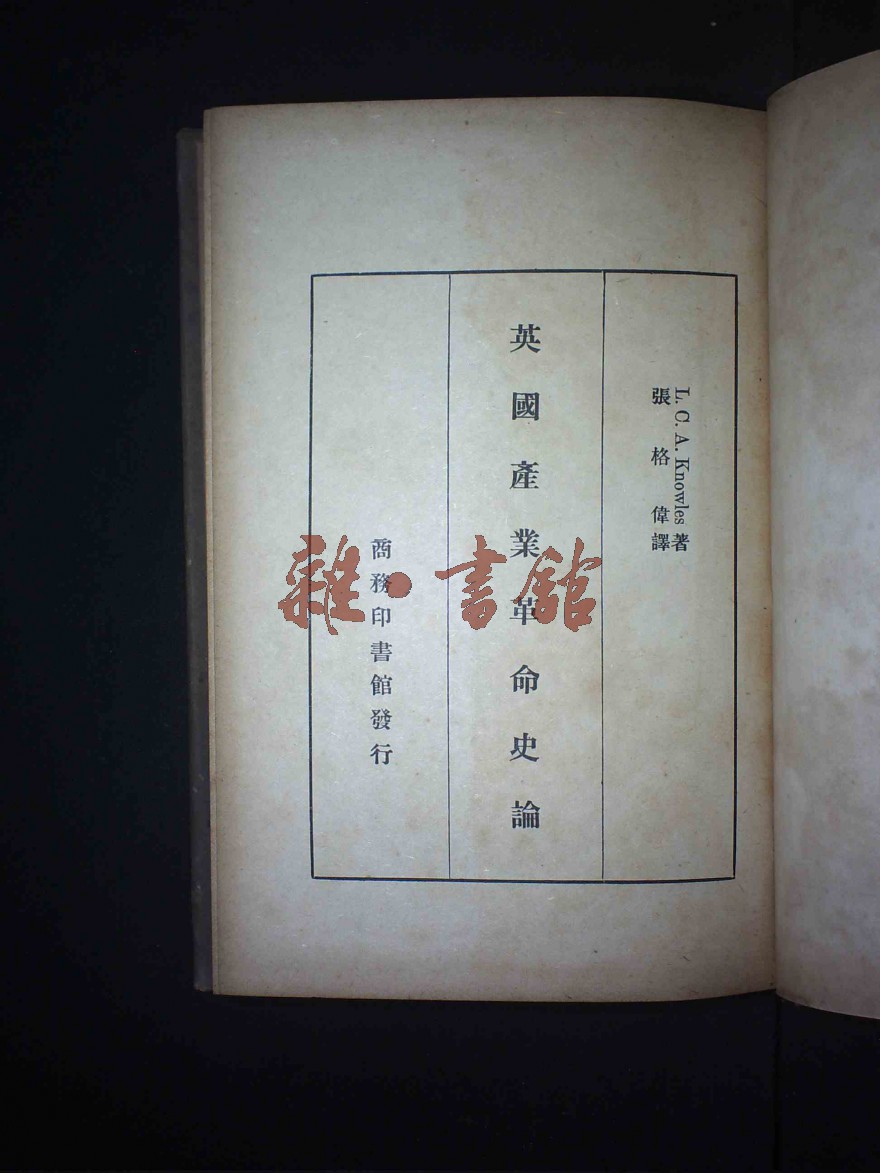 L. C. A. Knowles 著
張格偉譯
英國產業革命史論
商務印書館發行
雜·書館